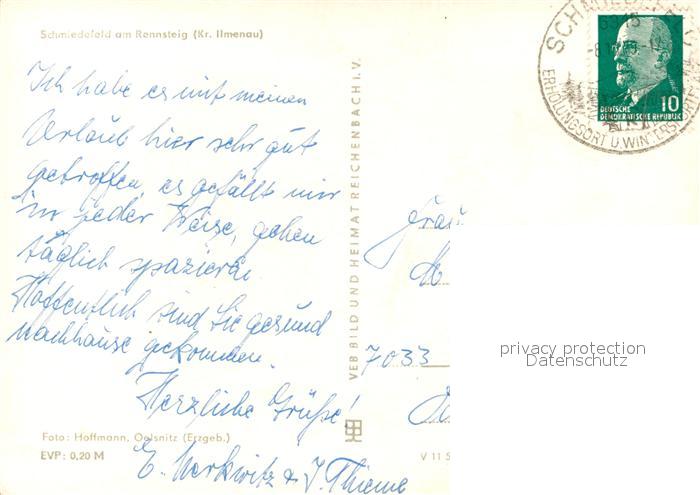 Schmiedefeld am Rennsteig (Kr. Ilmenau)
Ich habe es mit meinen
Urlaub hier sehr gut
getroffen, es gefällt mir
in jeder Weise, gehen
täglich spazieren.
Hoffentlich sind Sie gesund
nachhause gekommen.
Herzliche Grüße!
E. Merkwitz & J. Thieme
Foto: Hoffmann, Oelsnitz (Erzgeb.)
EVP: 0,20 M
VEB BILD UND HEIMAT REICHENBACH I. V.
V 11 5
7033
DEUTSCHE
DEMOKRATISCHE REPUBLIK
10
ERHOLUNGSORT U. WINTERSPORT
privacy protection
Datenschutz